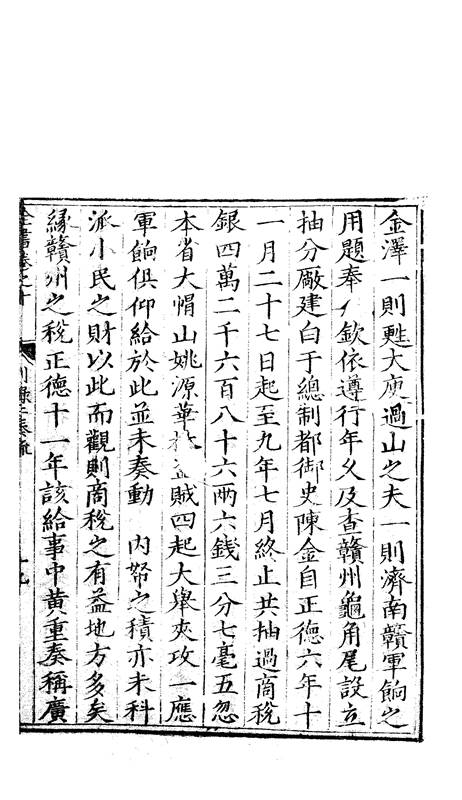 金澤一則甦大庾過山之夫一則濟南贛軍餉之
用題奉 欽依遵行年久及查贛州龜角尾設立
抽分廠建白于總制都御史陳金自正德六年十
一月二十七日起至九年七月終止共抽過商稅
銀四萬二千六百八十六兩六錢三分七毫五忽
本省大帽山姚源華林盜賊四起大舉夾攻一應
軍餉俱仰給於此並未奏動 内帑之積亦未科
派小民之財以此而觀則商稅之有益地方多矣
緣贛州之稅正德十一年該給事中黃重奏稱廣
全書卷之十 別錄二奏疏